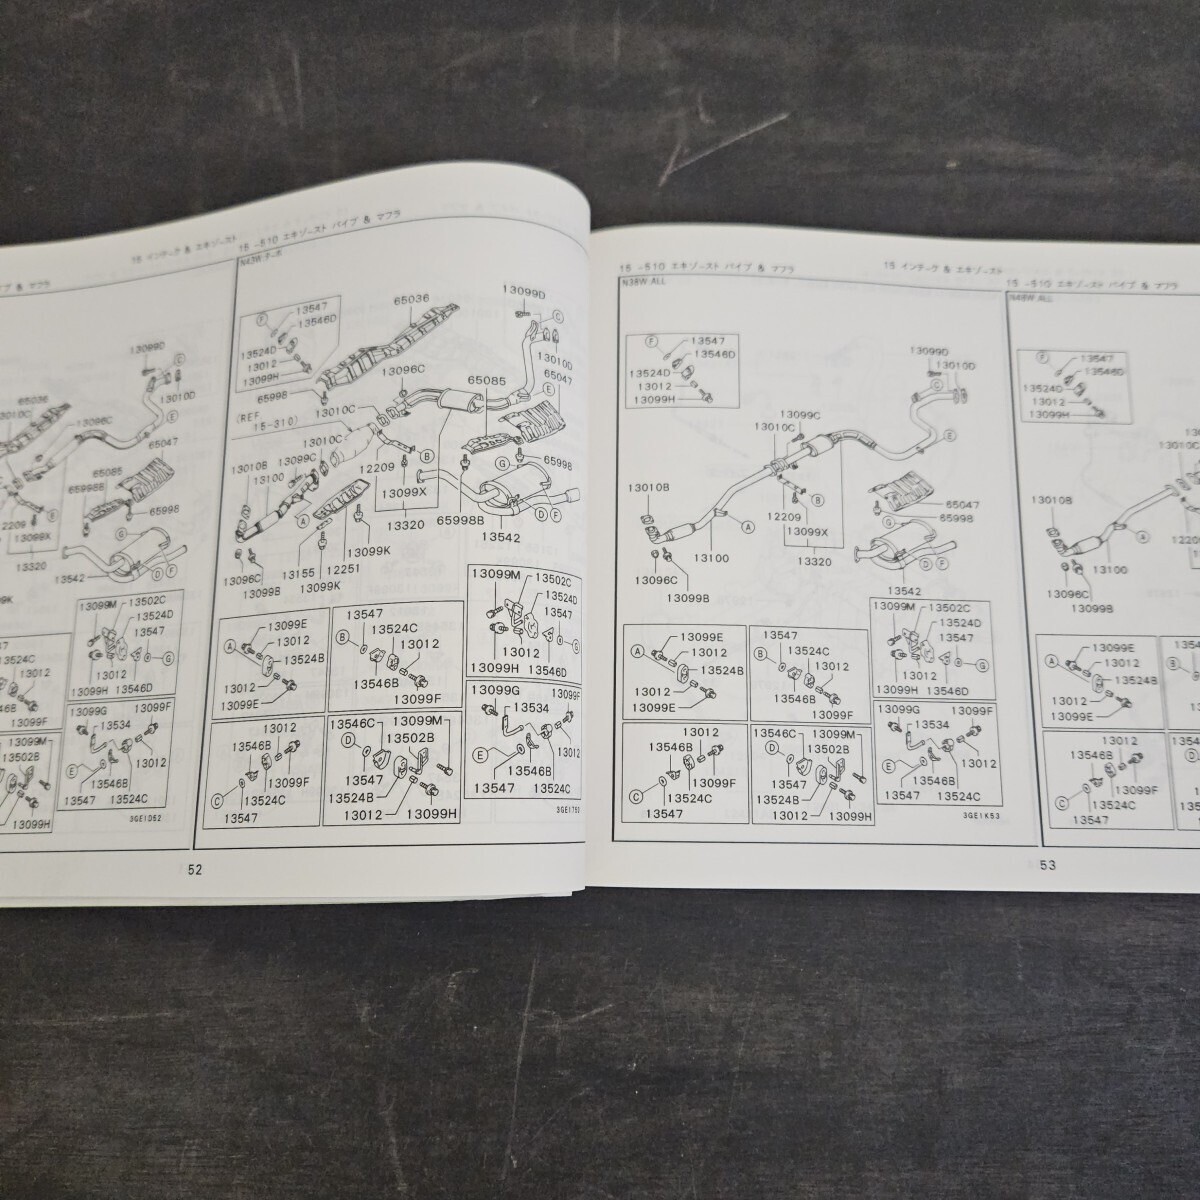 プ & マフラ
15 インテーク & エキゾースト
13099D
C
65036
13010D
13010C
13096C
E
65047
65085
65998B
65998
12209
13099X
G
13320
13542
D F
13099M
13502C
13524D
13547
G
13524C
13012
13099H 13546D
13099F
13099G
13099F
13534
13012
13099M
13502B
E
13546B
13547 13524C
13099H
3GE1D52
15 -510 エキゾースト パイプ & マフラ
N43W ターボ
F
13547
13546D
13524D
13012
13099H
65998
65036
13099D
C
13010D
13096C
65085
65047
E
(REF. 15-310)
13010C
13010C
13099C
13010B
13100
12209
B
G
65998
A
13099X
65998B
D F
13320
13542
13096C
13099B
13155
12251
13099K
13099K
13099E
A
13012
13524B
13012
13099E
13547
B
13524C
13012
13546B
13099F
13099M
13502C
13524D
13547
13012
G
13099H
13546D
13012
13546B
13099F
C
13524C
13547
13546C
13099M
D
13502B
13547
13524B
13012
13099H
13099G
13099F
13534
13012
E
13546B
13547
13524C
52
15 -510 エキゾースト パイプ & マフラ
15 インテーク & エキゾースト
N38W ALL
F
13547
13546D
13524D
13012
13099H
13099D
13010D
C
13099C
13010C
E
13010B
B
12209
13099X
A
65047
65998
G
13100
13320
D F
13096C
13542
13099B
13099E
A
13012
13524B
13012
13099E
13547
B
13524C
13012
13546B
13099F
13099M
13502C
13524D
13547
13012
G
13099H 13546D
13012
13546B
13099F
C
13524C
13547
13546C
13099M
D
13502B
13547
13524B
13012
13099H
13099G
13099F
13534
13012
E
13546B
13547
13524C
3GE1K53
15 -510 エキゾースト パイプ & マフラ
N48W ALL
F
13547
13546D
13524D
13012
13099H
13010B
13100
13096C
13099B
13099E
A
13012
13524B
13012
13099E
13012
13546B
13099F
C
13524C
13547
53